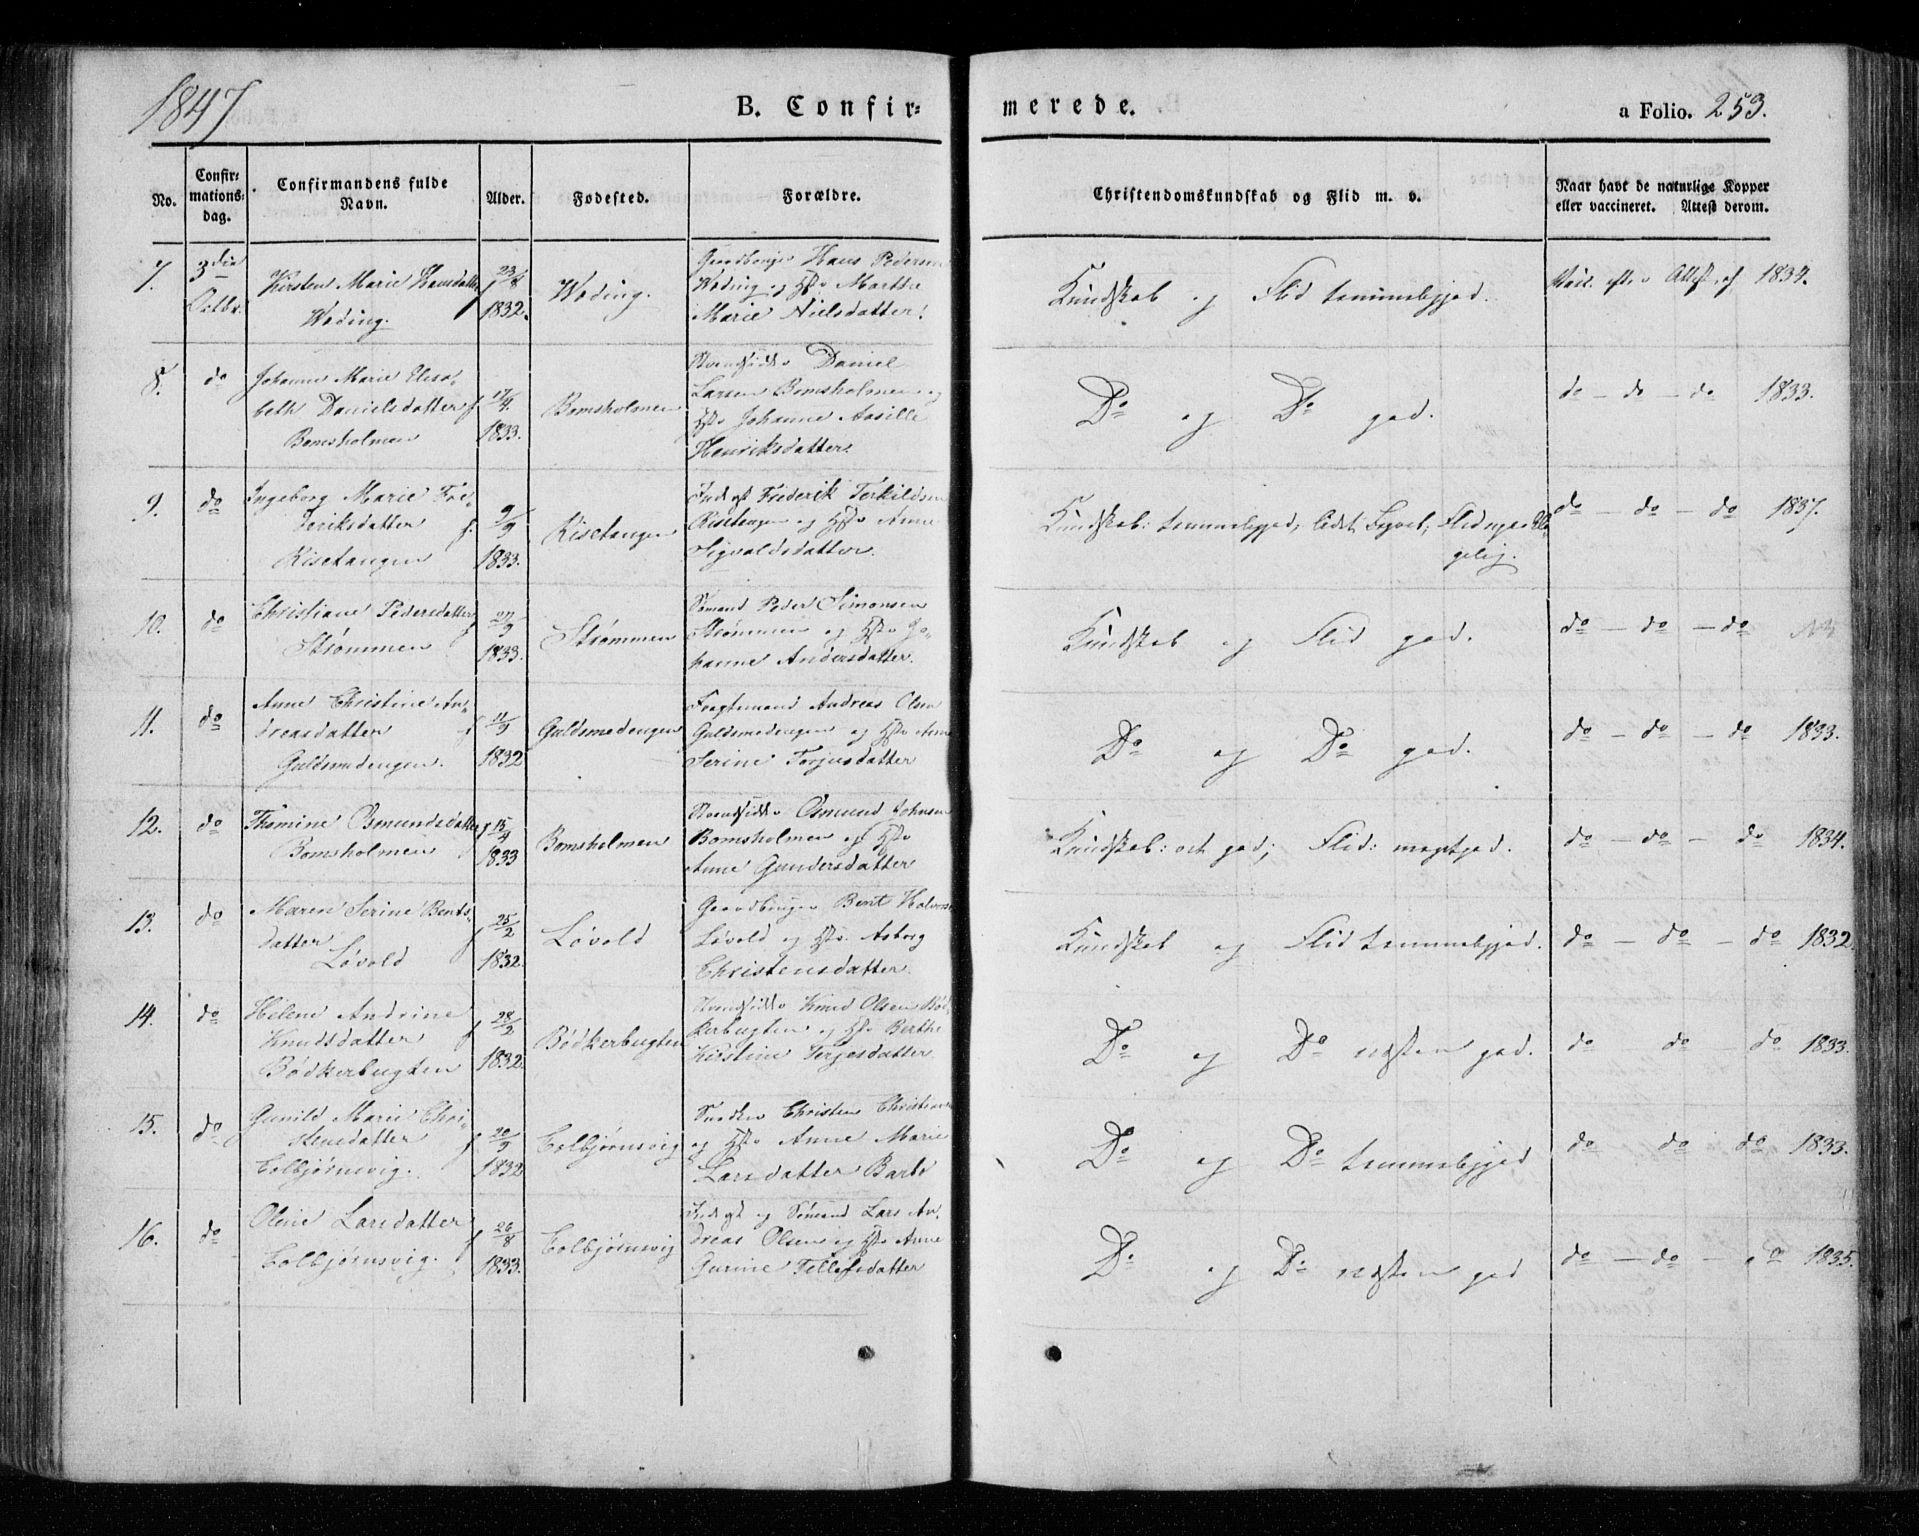 1847
B. Confir=
merede.
a Folio. 253.
No.
Confir=
mations=
dag.
Confirmandens fulde
Navn.
Alder.
Fødested.
Forældre.
Christendomskundskab og Flid m. v.
Naar havt de naturlige Kopper
eller vaccineret. Attest derom.
7.
3die
Octbr.
Kirsten Marie Hansdatter
Woding.
f 23/8
1832.
Woding.
Gaardbruger Hans Pedersen
Woding og Hstr Marthe
Marie Nielsdatter.
Kundskab og Flid temmeliggod.
Vacc. eftr Attest af 1834.
8.
do
Johanne Marie Elisa-
beth Danielsdatter
Bomsholmen
f. 17/4
1833.
Bomsholmen
Strandsidder Daniel
Larsen Bomsholmen og
Hstr Johanne Aasille
Henriksdatter.
Do og Do god.
do - do - do 1833.
9.
do
Ingeborg Marie Fre-
deriksdatter
Risetangen
f. 9/9
1833.
Risetangen
Inderst Frederik Terkildsen
Risetangen og Hstr Anne
Sigvaldsdatter.
Kundskab: temmeliggod,
gelig.
do - do - do 1837.
10.
do
Christiane Pedersdatter
Strømmen
f 27/9
1833.
Strømmen
Sømand Peder Simonsen
Strømmen og Hstr Jo-
hanne Andersdatter.
Kundskab og Flid god.
do - do - do
11.
do
Anne Christine An-
dreasdatter
Guldsmedengen.
f 11/9
1832
Guldsmedengen
Fragtemand Andreas Olsen
Guldsmedengen og Hstr Anne
Serine Torjusdatter
Do og Do god.
do - do - do 1833.
12.
do
Thomine Osmundsdatter
Bomsholmen
f 15/4
1833
Bomsholmen
Strandsidder Osmund Johnsen
Bomsholmen og Hstr
Anne Gundersdatter
Kundskab: god; Flid: megetgod.
do - do - do 1834.
13.
do
Maren Serine Bents-
datter
Løvold
f 25/2
1832.
Løvold
Gaardbruger Bent Halvors
Løvold og Hstr. Asborg
Christensdatter.
Kundskab og Flid temmeliggod.
do - do - do 1832.
14.
do
Helene Andrine
Knudsdatter
Bödkerbugten
f 28/2
1832.
Bödkerbugten
Strandsidder Knud Olsen Bød-
kerbugten og Hstr Berthe
Kirstine Terjesdatter.
Do og Do næsten god.
do do do 1833.
15.
do
Gunild Marie Chri-
stensdatter
Colbjørnsvig.
f 20/9
1832
Colbjørnsvig
Snedker Christen Christians
og Hstr Anne Marie
Larsdatter Barbo
Do og Do temmeliggod
do do do 1833.
16.
do
Oline Larsdatter
Colbjørnsvig.
f 26/8
1833.
Colbjørnsvig
Inderst og Sømand Lars An-
dreas Olsen og Hstr Anne
Gurine Tellefsdatter
Do og Do næsten god
do - do - do 1835.